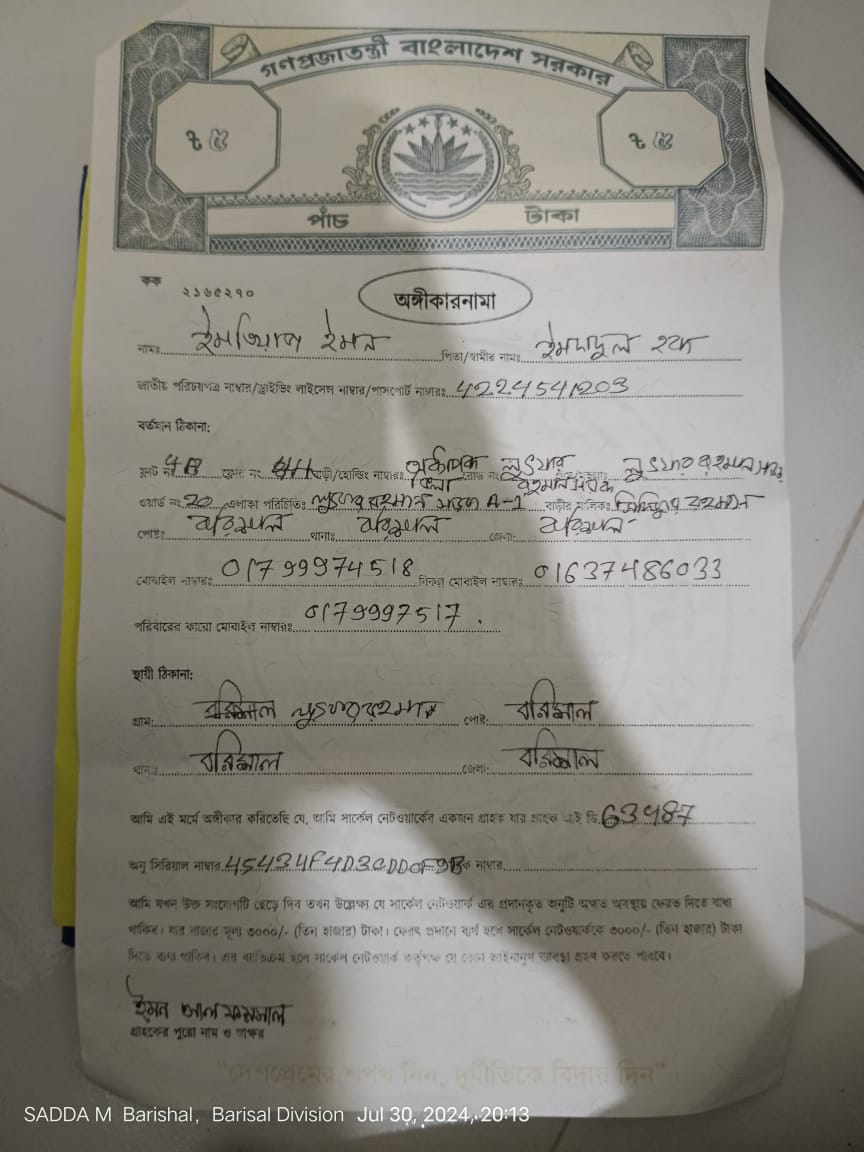 গণপ্রজাতন্ত্রী বাংলাদেশ সরকার
৳ ৫ ৳ ৫
পাঁচ টাকা
কক
২১৬৫২৭০
অঙ্গীকারনামা
নামঃ ইমতিয়াজ ইমন পিতা/স্বামীর নামঃ ইমদাদুল হক
জাতীয় পরিচয়পত্র নাম্বার/ড্রাইভিং লাইসেন্স নাম্বার/পাসপোর্ট নাম্বারঃ 4224541203
বর্তমান ঠিকানা:
ফ্লাট নং 4B ফ্লোর নং 4H বাড়ী/হোল্ডিং নাম্বারঃ রোড নং লুৎফর রহমান সড়ক
ওয়ার্ড নং 20 এলাকা পরিচিতিঃ লুৎফর রহমান সড়ক A-1 বাড়ীর মালিকঃ রহমান
পোষ্টঃ বরিশাল থানাঃ বরিশাল জেলা: বরিশাল
মোবাইল নাম্বারঃ 01799974518 বিকল্প মোবাইল নাম্বারঃ 01637486033
পরিবারের কারো মোবাইল নাম্বারঃ 0179997517.
স্থায়ী ঠিকানা:
গ্রাম: বরিশাল লুৎফর রহমান পোষ্ট: বরিশাল
থানাঃ বরিশাল জেলা: বরিশাল
আমি এই মর্মে অঙ্গীকার করিতেছি যে, আমি সার্কেল নেটওয়ার্কের একজন গ্রাহক যার গ্রাহক আই ডি 63487
অনু সিরিয়াল নাম্বার 45434F4D3CDD0F9B নাম্বার
আমি যখন উক্ত সংযোগটি ছেড়ে দিব তখন উল্লেক্ষ্য যে সার্কেল নেটওয়ার্ক এর প্রদানকৃত অনুটি অক্ষত অবস্থায় ফেরত দিতে বাধ্য
থাকিব। যার বাজার মূল্য ৩০০০/- (তিন হাজার) টাকা। ফেরৎ প্রদানে ব্যর্থ হলে সার্কেল নেটওয়ার্ককে ৩০০০/- (তিন হাজার) টাকা
দিতে বাধ্য থাকিব। এর ব্যতিক্রম হলে সার্কেল নেটওয়ার্ক কর্তৃপক্ষ যে কোন আইনানুগ ব্যবস্থা গ্রহণ করতে পারবে।
ইমন আল ফয়সাল
গ্রাহকের পুরো নাম ও স্বাক্ষর
“দেশপ্রেমের শপথ নিন, দুর্নীতিকে বিদায় দিন”
SADDA M Barishal, Barisal Division Jul 30, 2024, 20:13